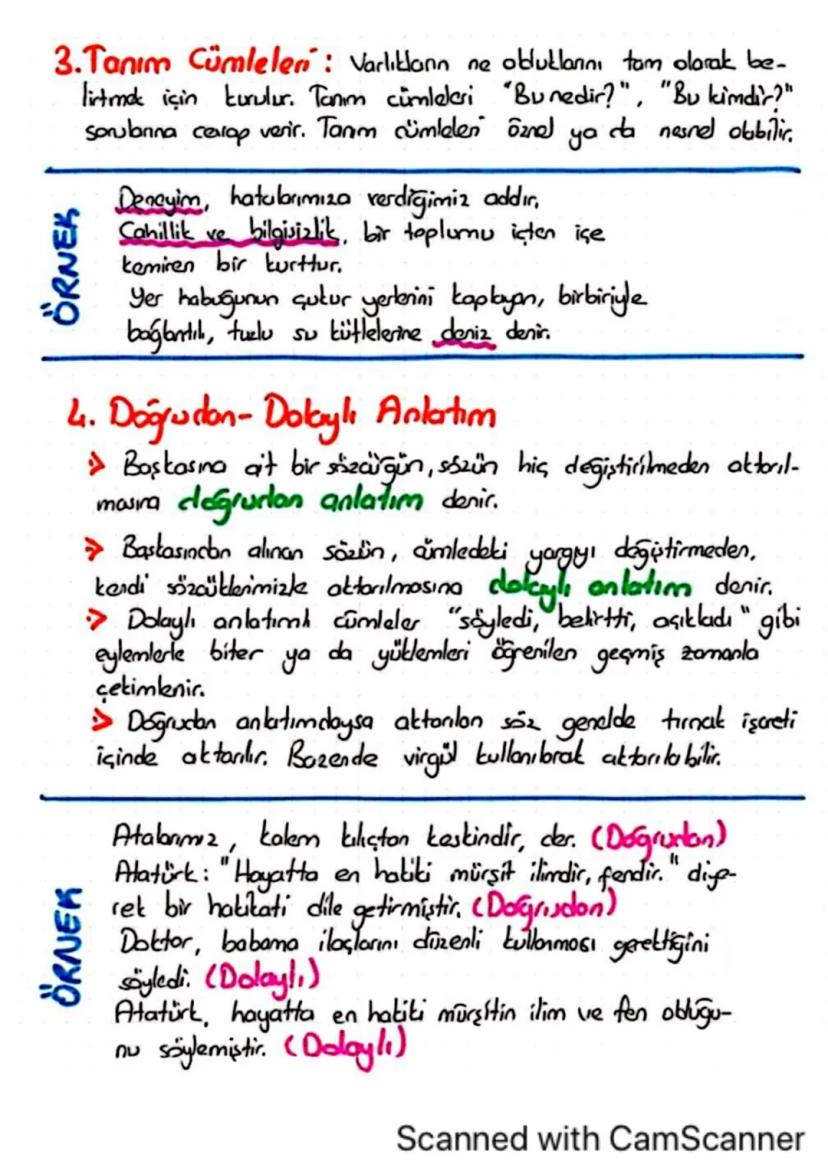 3. Tanım Cümleleri: Varlıkların ne olduklarını tam olarak be-
lirtmek için kurulur. Tanım cümleleri "Bu nedir?", "Bu kimdir?"
sorularına cevap verir. Tanım cümleleri öznel ya da nesnel olabilir.
ÖRNEK
Deneyim, hatalarımıza verdiğimiz addır.
Cahillik ve bilgisizlik, bir toplumu içten içe
kemiren bir kurttur.
Yer habuğunun çukur yerlerini kaplayan, birbiriyle
bağlantılı, tuzlu su kütlelerine deniz denir.
4. Doğrudan-Dolaylı Anlatım
> Başkasına ait bir sözcüğün, sözün hiç değiştirilmeden aktarıl-
masına doğrudan anlatım denir.
> Başkasından alınan sözün, cümledeki yargıyı değiştirmeden,
kendi sözcüklerimizle aktarılmasına dolaylı anlatım denir.
> Dolaylı anlatımlı cümleler "söyledi, belirtti, açıkladı" gibi
eylemlerle biter ya da yüklemleri öğrenilen geçmiş zamanla
çekimlenir.
> Doğrudan anlatımdaysa aktarılan söz genelde tırnak işareti
içinde aktarılır. Bazende virgül kullanılarak aktarılabilir.
ÖRNEK
Atalarımız, kalem kılıçtan keskindir, der. (Doğrudan)
Atatürk: "Hayatta en hakiki mürşit ilimdir, fendir." diye-
rek bir hakikati dile getirmiştir. (Doğrudan)
Doktor, babama ilaçlarını düzenli kullanması gerektiğini
söyledi. (Dolaylı)
Atatürk, hayatta en hakiki mürşitin ilim ve fen olduğu-
nu söylemiştir. (Dolaylı)
Scanned with CamScanner